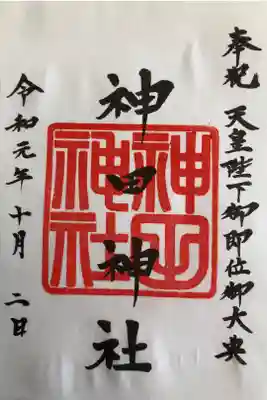 奉祝 天皇陛下御即位御大典
神田神社
神田神社
令和元年十月二日